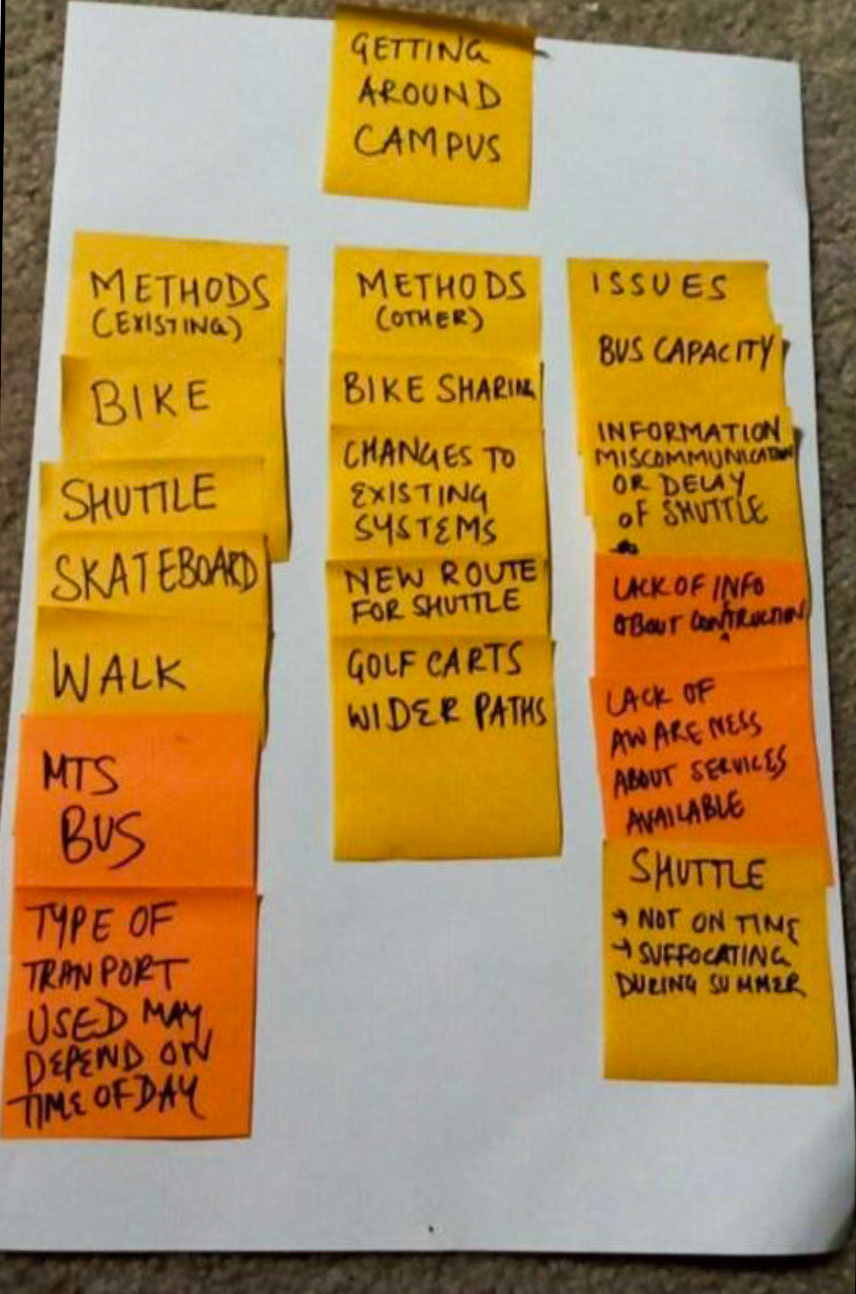 GETTING
AROUND
CAMPUS
METHODS
(EXISTING)
BIKE
SHUTTLE
SKATEBOARD
WALK
MTS
BUS
TYPE OF
TRANPORT
USED MAY
DEPEND ON
TIME OF DAY
METHODS
(OTHER)
BIKE SHARING
CHANGES TO
EXISTING
SYSTEMS
NEW ROUTE
FOR SHUTTLE
GOLF CARTS
WIDER PATHS
ISSUES
BUS CAPACITY
INFORMATION
MISCOMMUNICATION
OR DELAY
OF SHUTTLE
LACK OF INFO
ABOUT CONTRUCTION
LACK OF
AWARENESS
ABOUT SERVICES
AVAILABLE
SHUTTLE
→ NOT ON TIME
→ SUFFOCATING
DURING SUMMER